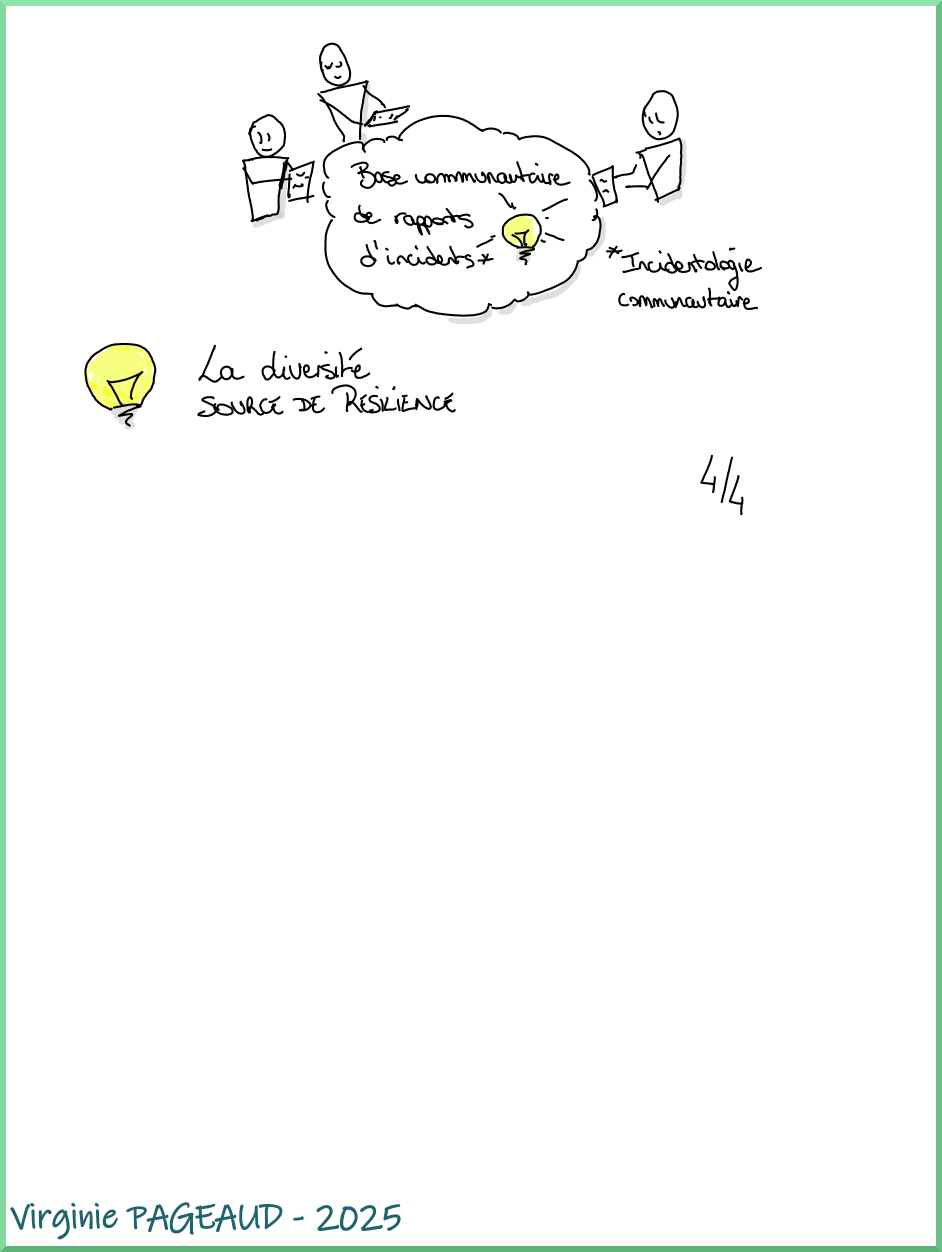 Base communautaire
de rapports
d'incidents*
*Incidentologie
communautaire
La diversité
SOURCE DE RÉSILIENCE
4/4
Virginie PAGEAUD - 2025